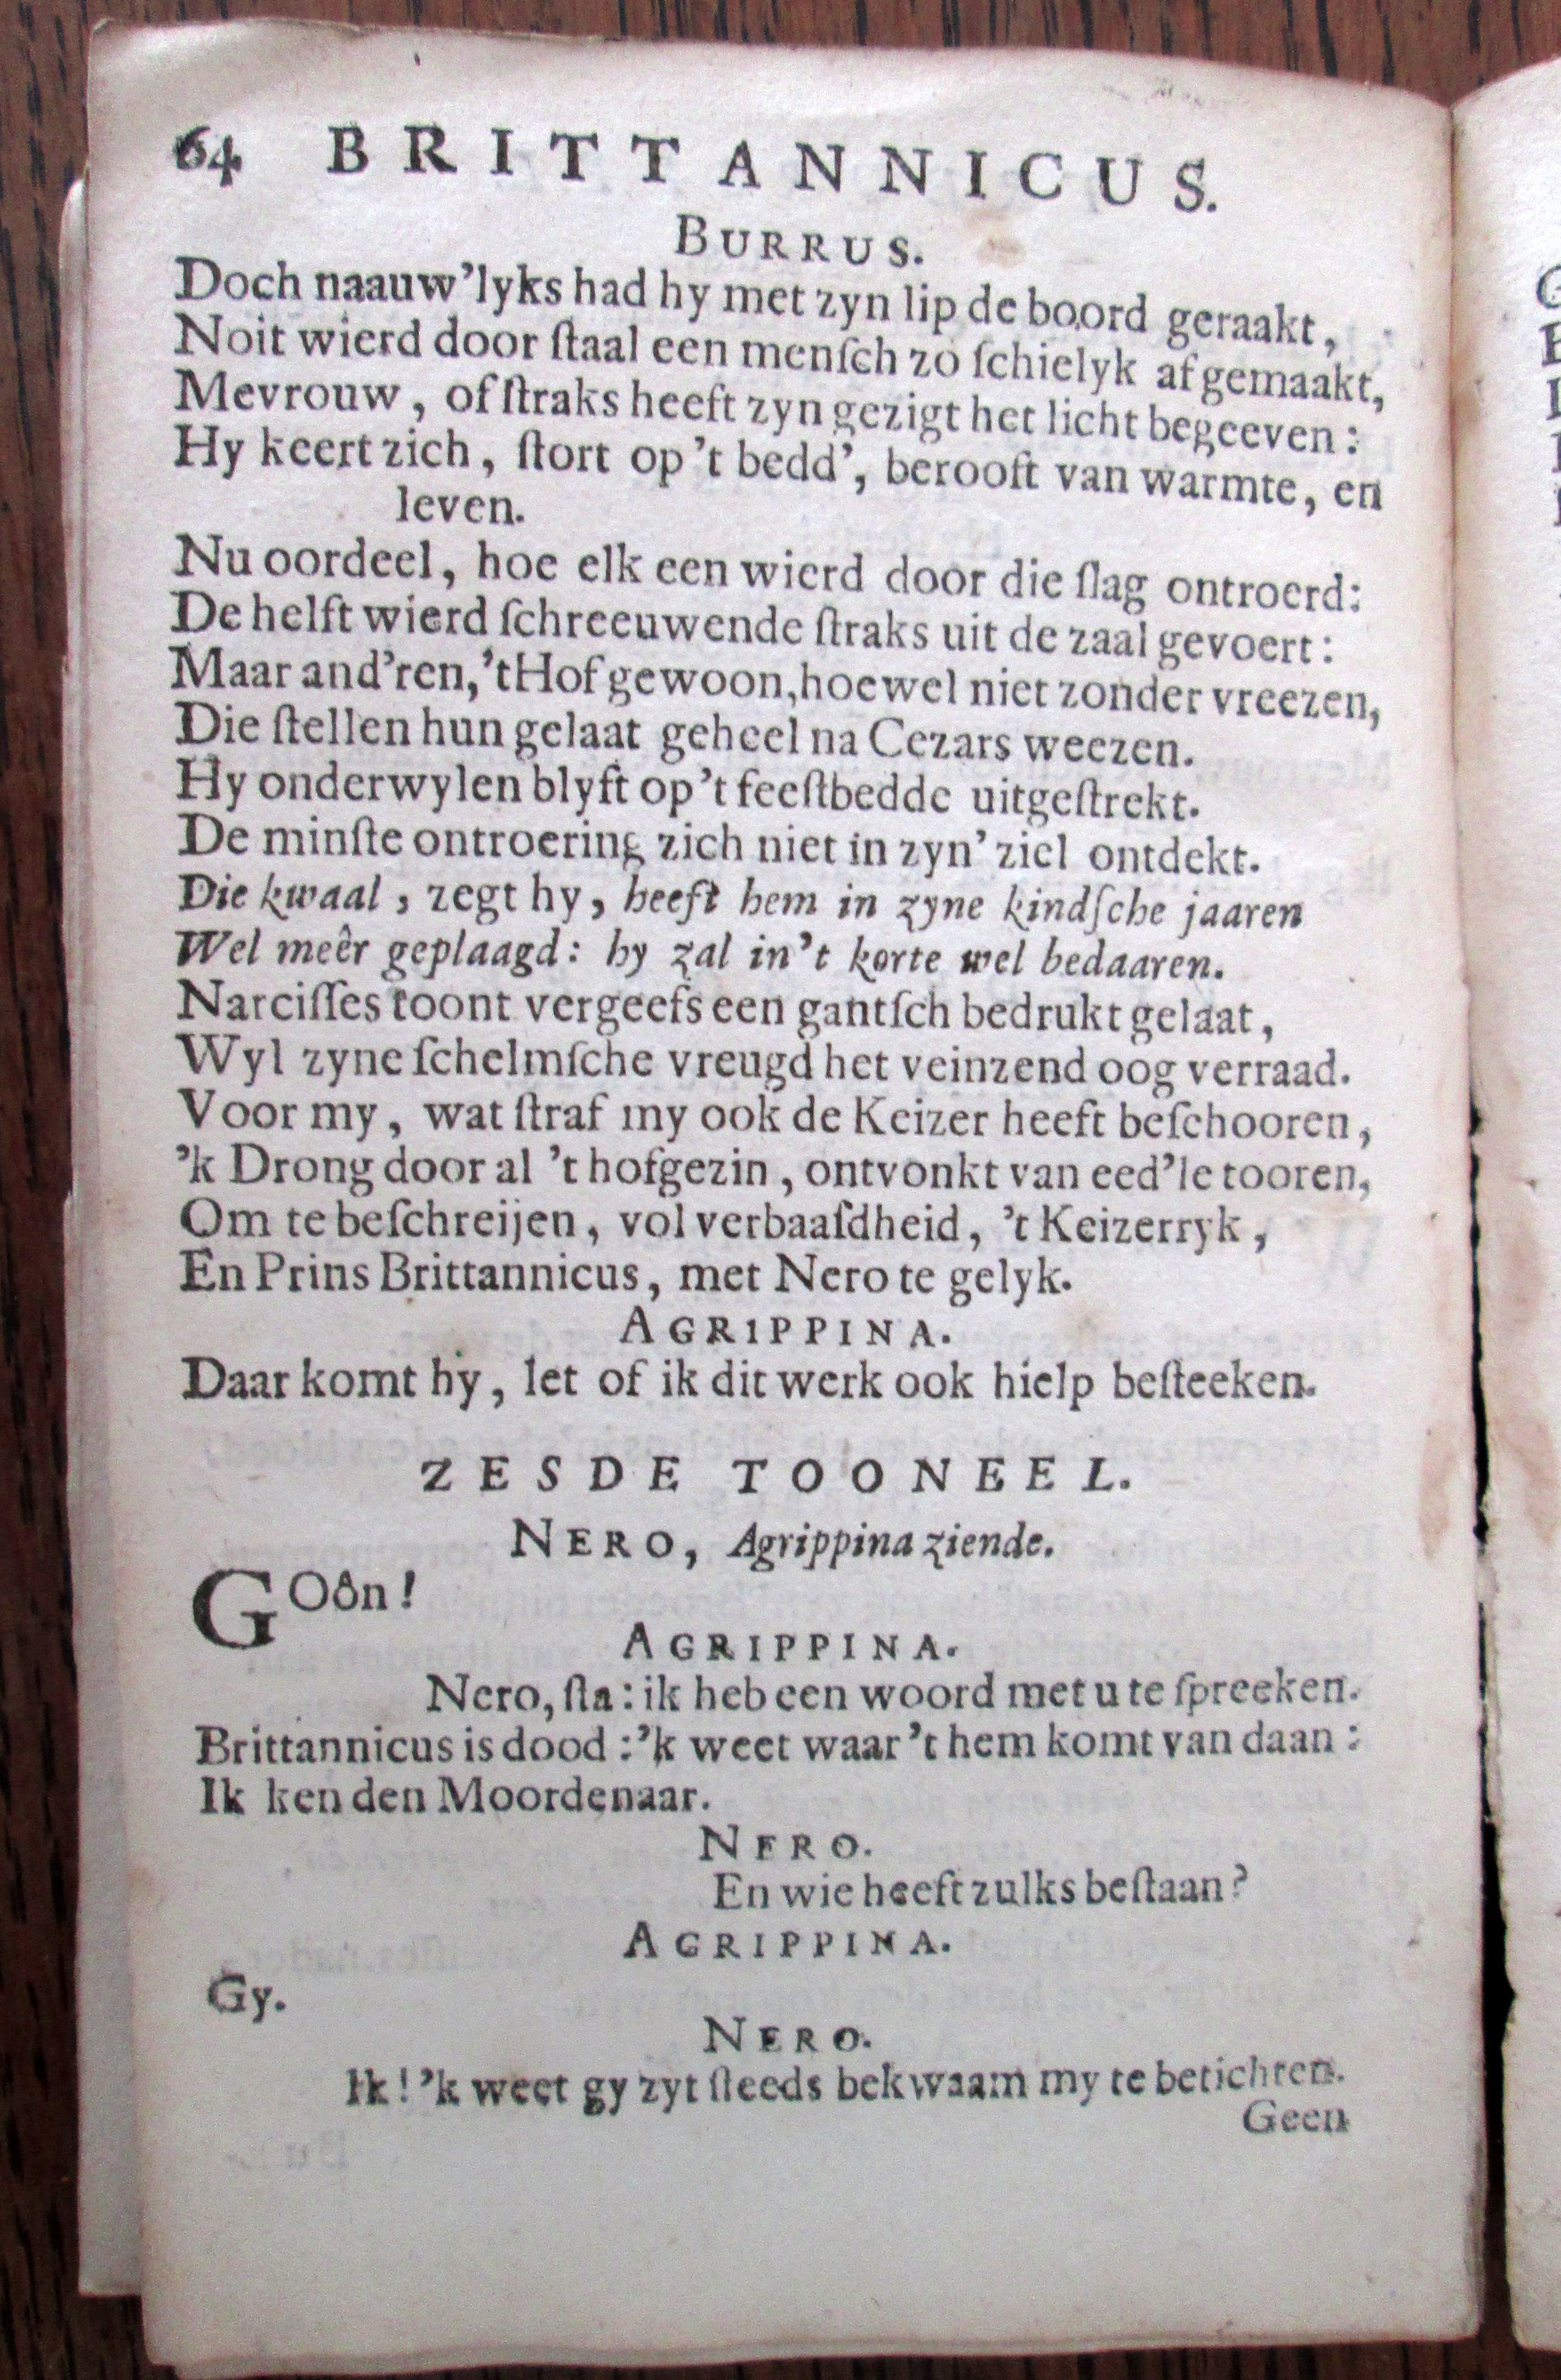 64 BRITTANNICUS.
BURRUS.
Doch naauw'lyks had hy met zyn lip de boord geraakt,
Noit wierd door ſtaal een menſch zo ſchielyk afgemaakt,
Mevrouw, of ſtraks heeft zyn gezigt het licht begeeven:
Hy keert zich, ſtort op 't bedd', berooft van warmte, en
leven.
Nu oordeel, hoe elk een wierd door die ſlag ontroerd:
De helft wierd ſchreeuwende ſtraks uit de zaal gevoert:
Maar and'ren, 't Hof gewoon, hoewel niet zonder vreezen,
Die ſtellen hun gelaat geheel na Cezars weezen.
Hy onderwylen blyft op 't feeſtbedde uitgeſtrekt.
De minſte ontroering zich niet in zyn' ziel ontdekt.
Die kwaal, zegt hy, heeft hem in zyne kindſche jaaren
Wel meêr geplaagd: hy zal in 't korte wel bedaaren.
Narciſſes toont vergeefs een gantſch bedrukt gelaat,
Wyl zyne ſchelmſche vreugd het veinzend oog verraad.
Voor my, wat ſtraf my ook de Keizer heeft beſchooren,
'k Drong door al 't hofgezin, ontvonkt van eed'le tooren,
Om te beſchreijen, vol verbaaſdheid, 't Keizerryk,
En Prins Brittannicus, met Nero te gelyk.
AGRIPPINA.
Daar komt hy, let of ik dit werk ook hielp beſteeken.
ZESDE TOONEEL.
NERO, Agrippina ziende.
GOôn!
AGRIPPINA.
Nero, ſta: ik heb een woord met u te ſpreeken.
Brittannicus is dood: 'k weet waar 't hem komt van daan:
Ik ken den Moordenaar.
NERO.
En wie heeft zulks beſtaan?
AGRIPPINA.
Gy.
NERO.
Ik! 'k weet gy zyt ſteeds bekwaam my te betichten.
Geen